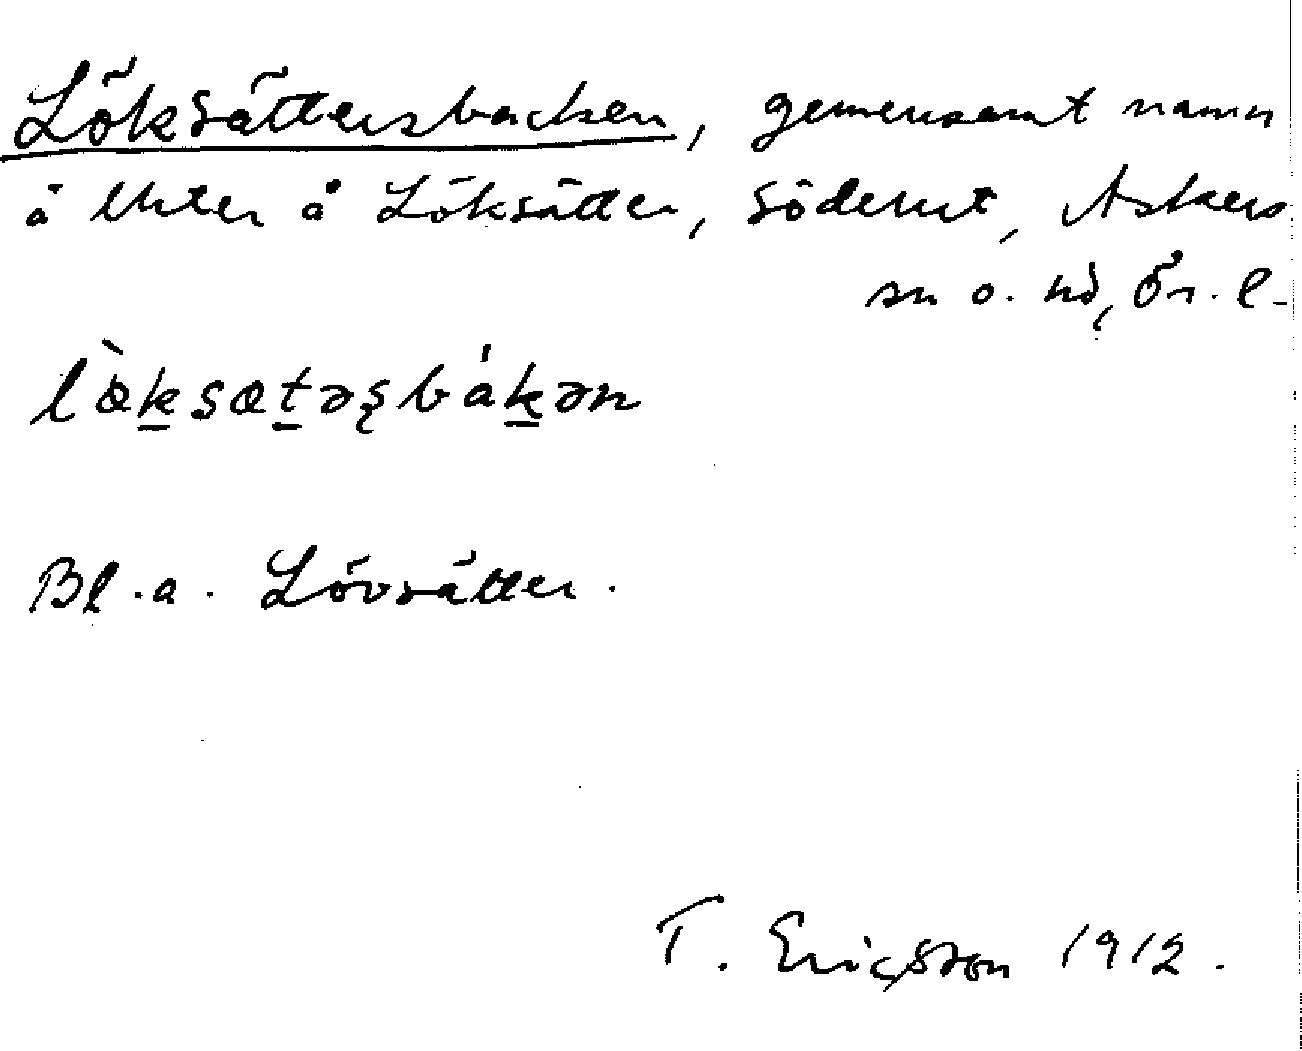 Löksättersbacken, gemensamt namn
å lhter å Löksätter, söderut, Askers
sn o. hd, Ör. l.
lὰksætəșbákən
Bl. a. Lövsätter.
T. Ericsson 1912.